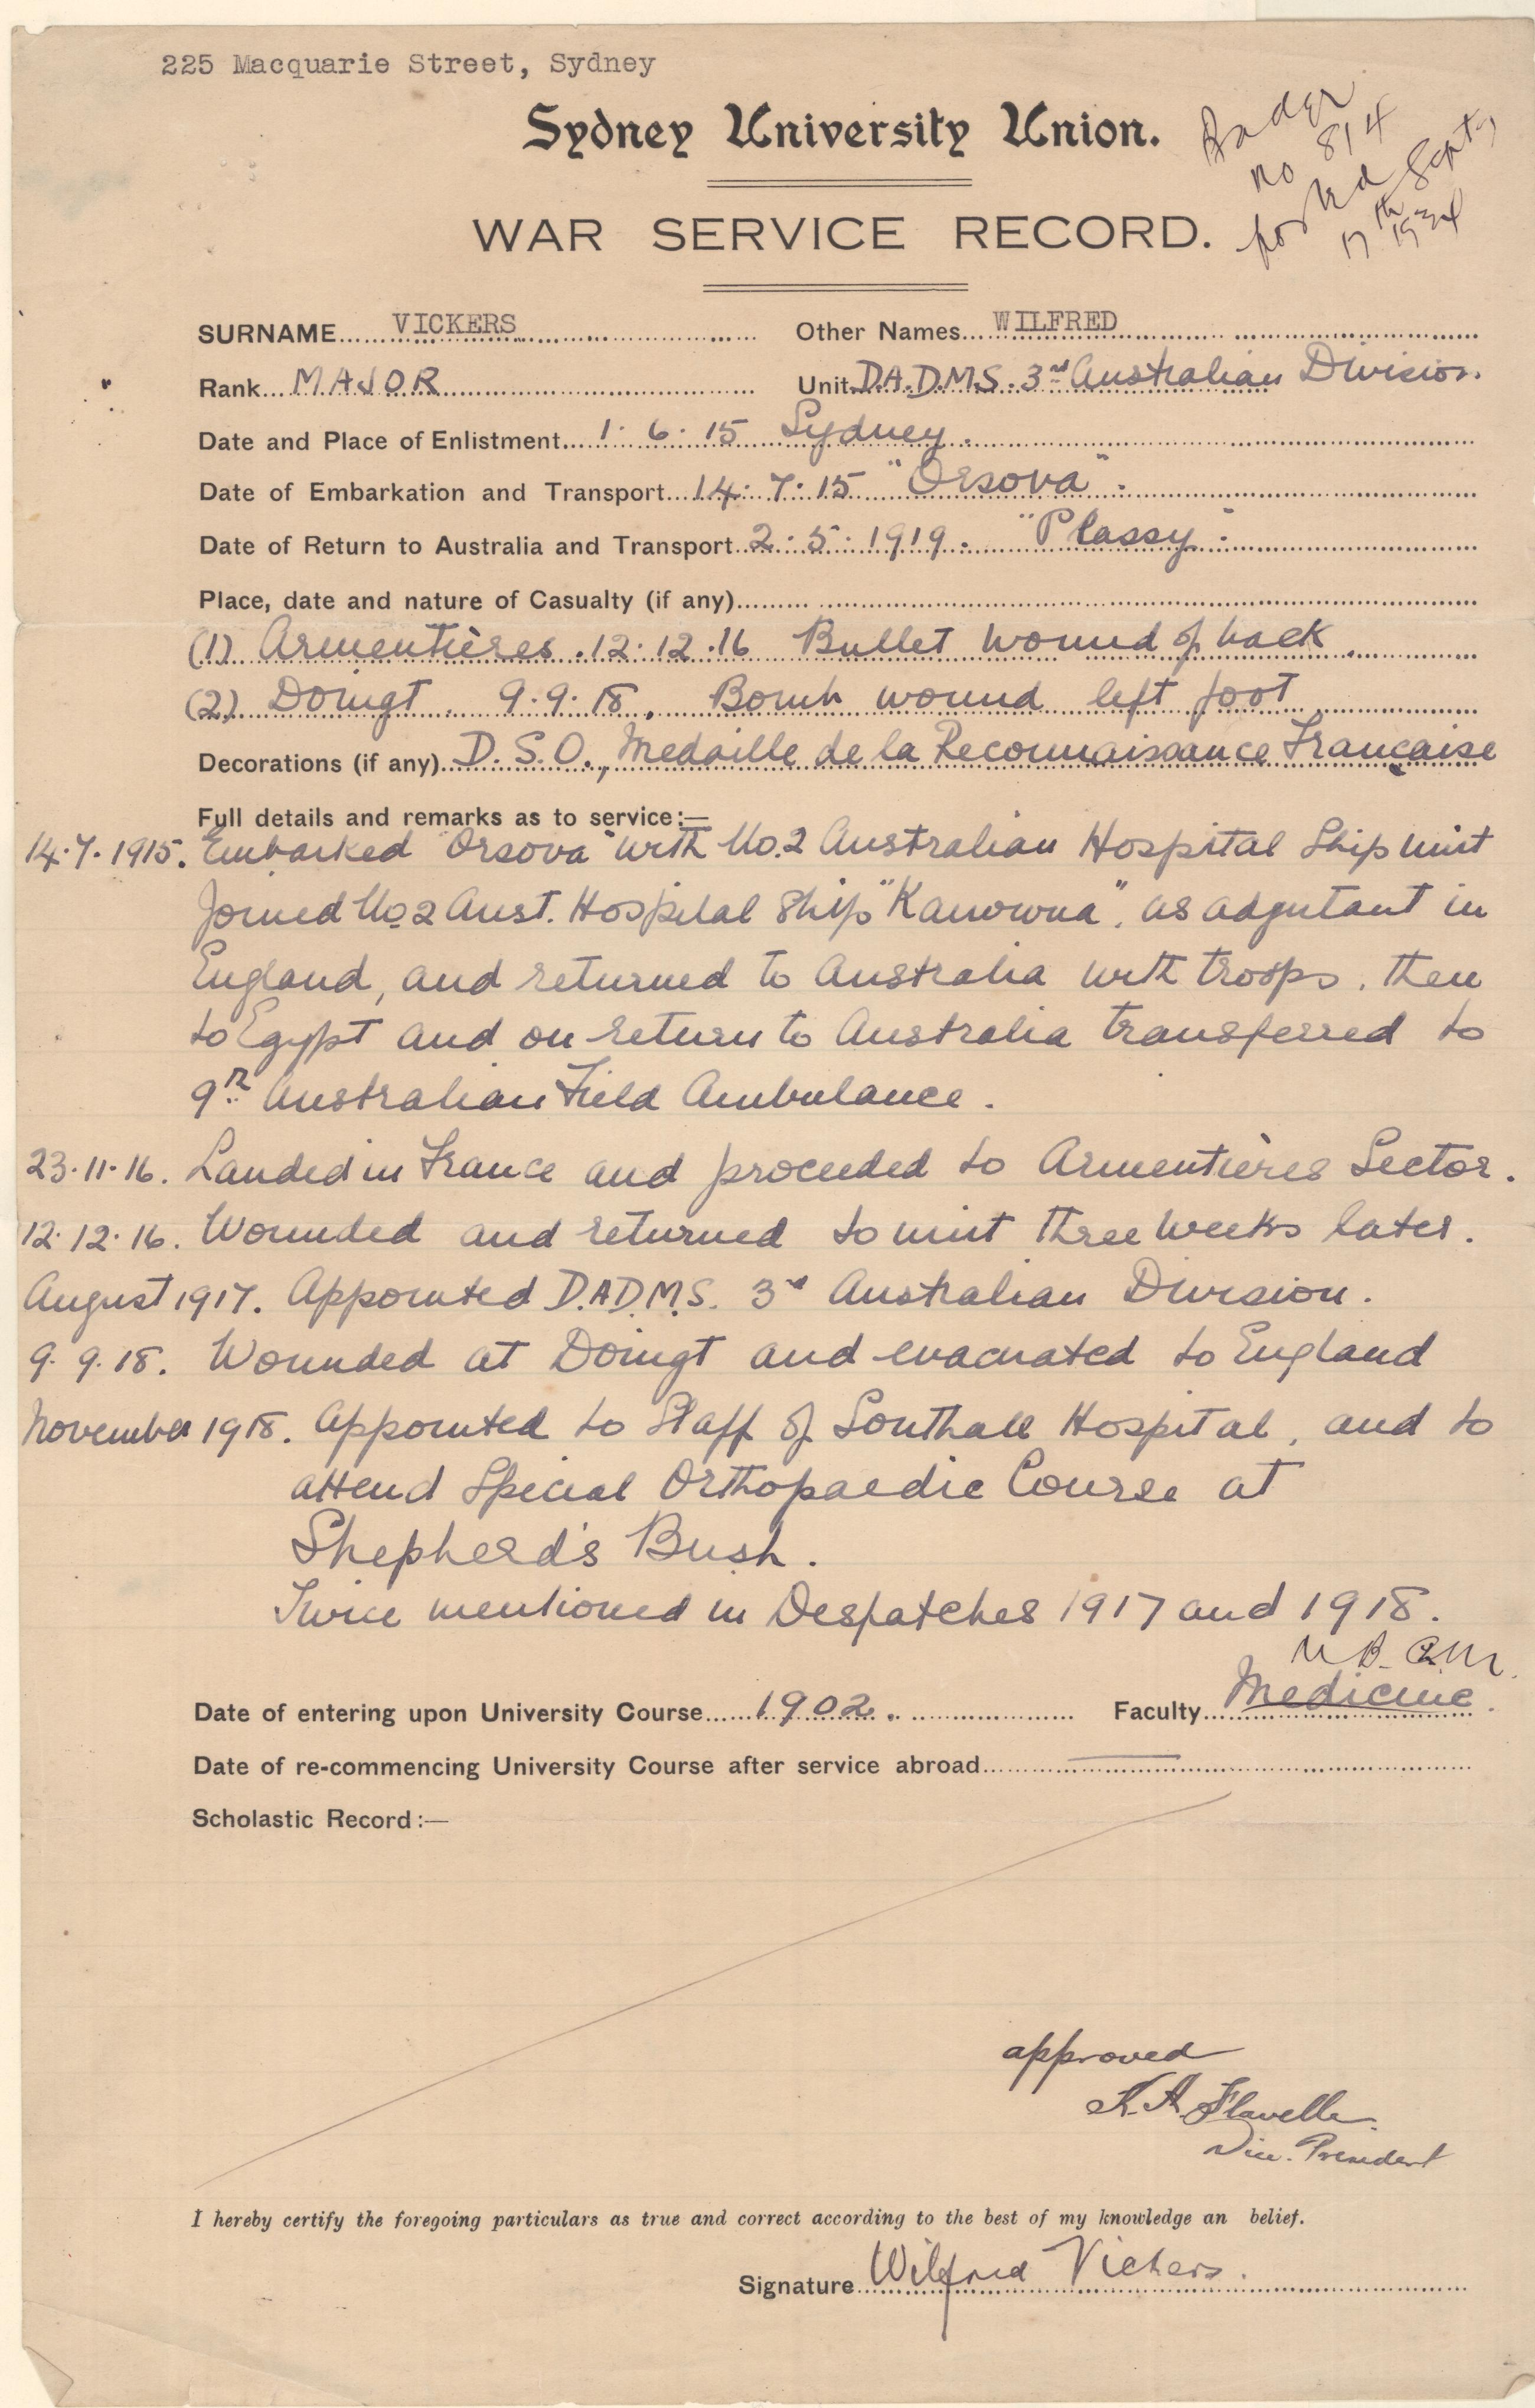 225 Macquarie Street, Sydney
Sydney University Union.
Badge
no 814
posted
17th Sept,
1934
WAR SERVICE RECORD.
SURNAME VICKERS Other Names WILFRED
Rank MAJOR Unit D.A.D.M.S. 3rd Australian Division.
Date and Place of Enlistment 1.6.15 Sydney.
Date of Embarkation and Transport 14.7.15 "Orsova".
Date of Return to Australia and Transport 2.5.1919. "Plassy".
Place, date and nature of Casualty (if any)
(1) Armentières. 12.12.16 Bullet wound of back.
(2) Doingt. 9.9.18. Bomb wound left foot
Decorations (if any) D.S.O., Medaille de la Reconnaissance Française
Full details and remarks as to service:—
14.7.1915. Embarked "Orsova" with No.2 Australian Hospital Ship unit
Joined No 2 Aust. Hospital Ship "Kanowna", as adjutant in
England, and returned to Australia with troops, then
to Egypt and on return to Australia transferred to
9th Australian Field Ambulance.
23.11.16. Landed in France and proceeded to Armentières Sector.
12.12.16. Wounded and returned to unit three weeks later.
August 1917. Appointed D.A.D.M.S. 3rd Australian Division.
9.9.18. Wounded at Doingt and evacuated to England
November 1918. Appointed to Staff of Southall Hospital, and to
attend Special Orthopaedic Course at
Shepherd's Bush.
Twice mentioned in Despatches 1917 and 1918.
M.B. Ch.M.
Date of entering upon University Course 1902. Faculty Medicine.
Date of re-commencing University Course after service abroad —
Scholastic Record:—
approved
Flavelle.
Vice. President
I hereby certify the foregoing particulars as true and correct according to the best of my knowledge an belief.
Signature Wilfred Vickers.